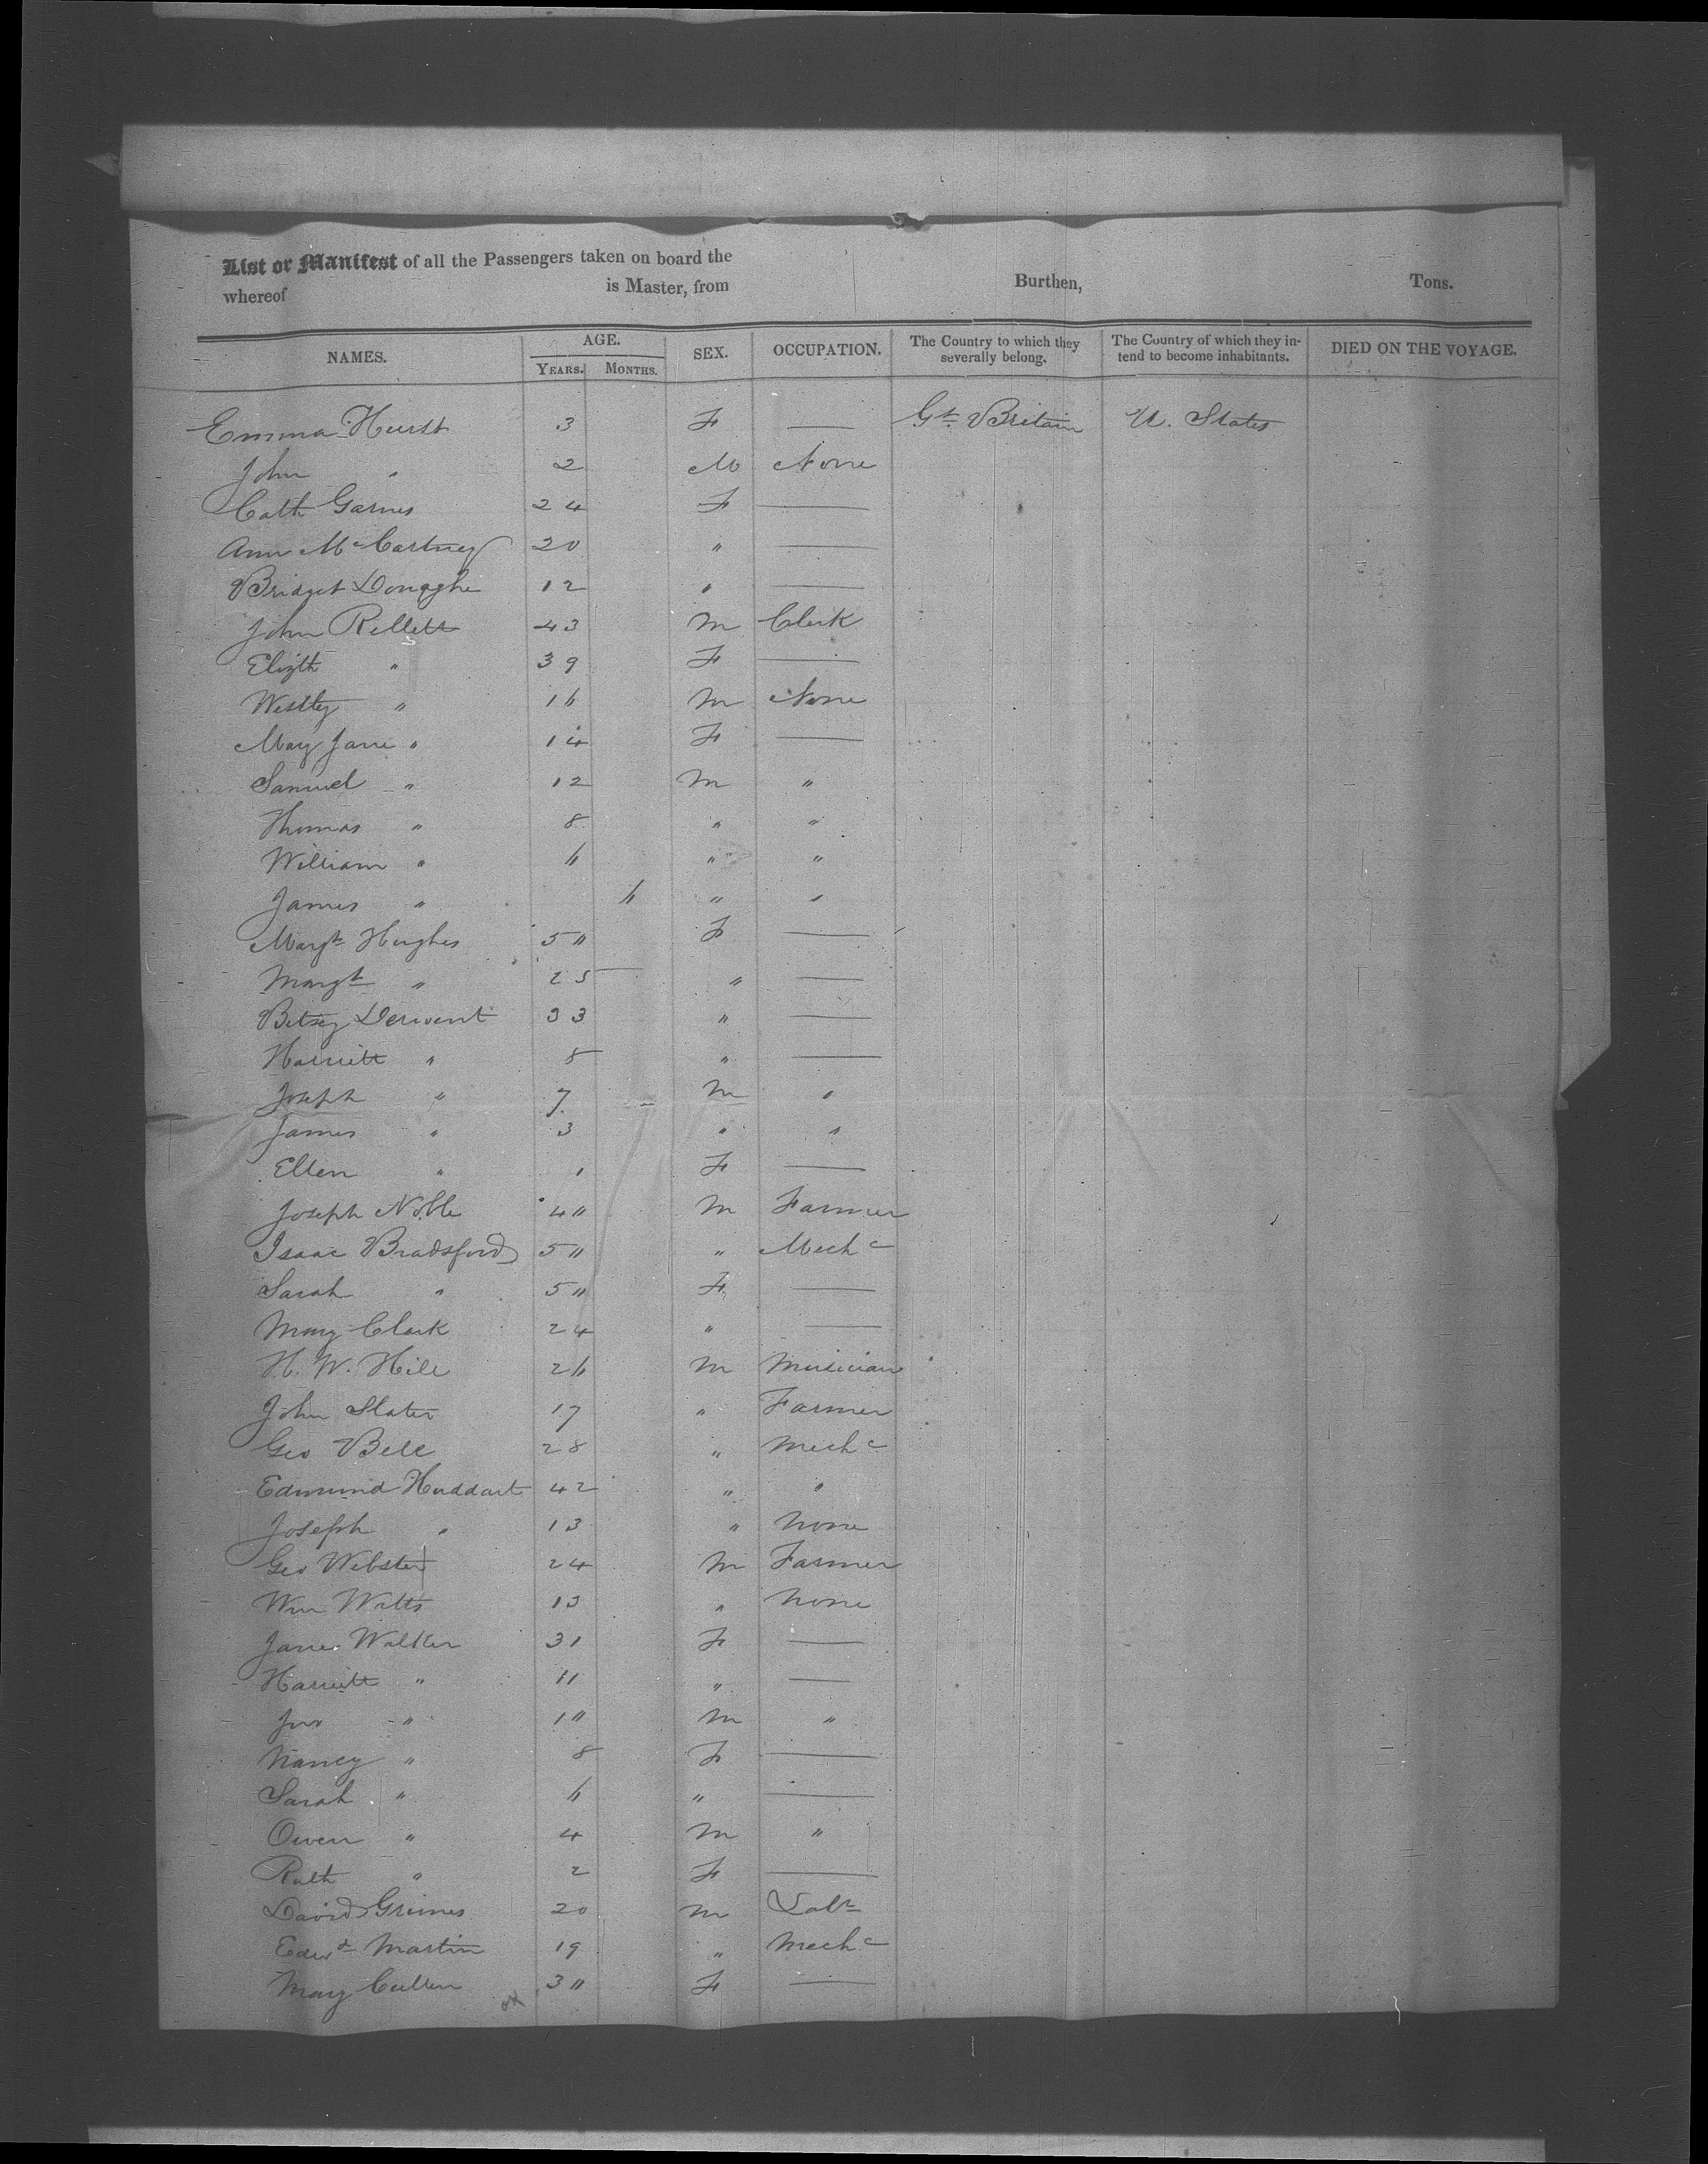 List or Manifest of all the Passengers taken on board the
whereof is Master, from Burthen, Tons.
NAMES. AGE. YEARS. MONTHS. SEX. OCCUPATION. The Country to which they severally belong. The Country of which they intend to become inhabitants. DIED ON THE VOYAGE.
Emma Hurst 3 F — Gt. Britain U. States
John " 2 M None
Cath Garnes 24 F —
Ann McCartney 20 " —
Bridget Donaghe 12 " —
John Rellett 43 M Clerk
Elizth " 39 F —
Westley " 16 M None
May Jane " 14 F —
Samuel " 12 M "
Thomas " 8 " "
William " 6 " "
James " 6 " "
Margt Hughes 50 F —
Margt " 25 " —
Betsey Derwent 33 " —
Harriett " 8 " —
Joseph " 7 M "
James " 3 " "
Ellen " 1 F —
Joseph Noble 40 M Farmer
Isaac Bradsford 50 " Mechc
Sarah " 50 F —
Mary Clark 24 " —
H. W. Hill 26 M Musician
John Slater 17 " Farmer
Geo Bell 28 " Mechc
Edmund Huddart 42 " "
Joseph " 13 " None
Geo Webster 24 M Farmer
Wm Watts 13 " None
Jane Walker 31 F —
Harriett " 11 " —
Jno " 10 M "
Nancy " 8 F —
Sarah " 6 " —
Owen " 4 M "
Ruth " 2 F —
David Grimes 20 M Labr
Edwd Martin 19 " Mechc
Mary Cullen 30 F —